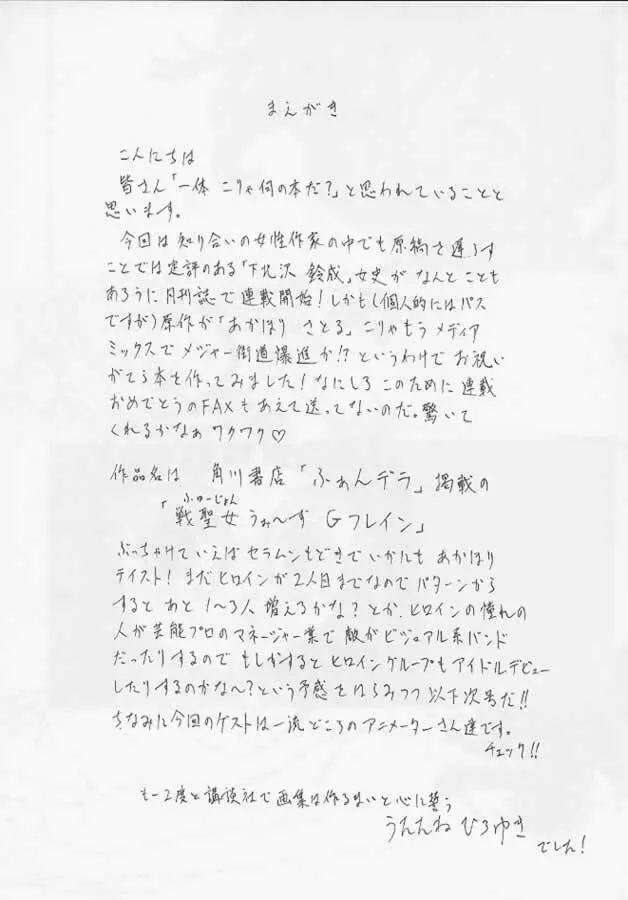 まえがき
こんにちは
皆さん「一体 こりゃ何の本だ?」と思われていることと
思います。
今回は知り合いの女性作家の中でも原稿を遅らす
ことでは定評のある「下北沢 鈴成」女史が なんと ことも
あろうに 月刊誌で連載開始!しかも(個人的にはパス
ですが)原作が「あかほり さとる」こりゃもう メディア
ミックスで メジャー街道爆進か!?というわけで お祝い
がてら本を作ってみました!なにしろ このために連載
おめでとうのFAXもあえて送ってないのだ。驚いて
くれるかなぁ ワクワク♡
作品名は 角川書店「ふぁんデラ」掲載の
ふゅーじょん
「戦聖女 うぉ〜ず Gフレイン」
ぶっちゃけていえばセラムンもどきでいかにも あかほり
テイスト! まだヒロインが2人目までなので パターンから
すると あと 1〜3人 増えるかな? とか、ヒロインの憧れの
人が芸能プロのマネージャー業で 敵がビジュアル系バンド
だったりするので もしかすると ヒロイングループも アイドルデビュー
したりするのかな〜?という予感をはらみつつ 以下次号だ!!
ちなみに今回のゲストは一流どころのアニメーターさん達です。
チェック!!
もー2度と講談社で画集は作るまいと心に誓う
うたたね ひろゆき
でした!